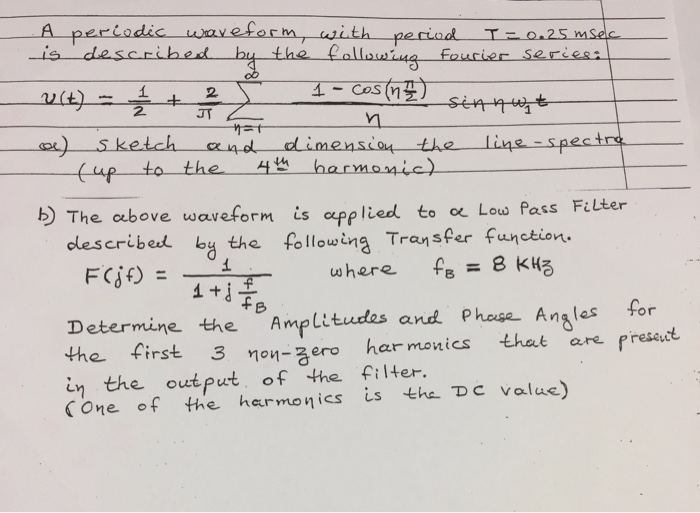 A periodic waveform, with period T = 0.25 msec
is described by the following Fourier series:
v(t) = 1/2 + 2/π ∑_{n=1}^{∞} (1 - cos(n π/2))/n sin n ω₁ t
a) sketch and dimension the line-spectra
(up to the 4th harmonic)
b) The above waveform is applied to a Low Pass Filter
described by the following Transfer function.
F(jf) = 1/(1 + j f/f_B) where f_B = 8 KHz
Determine the Amplitudes and Phase Angles for
the first 3 non-zero harmonics that are present
in the output of the filter.
(One of the harmonics is the DC value)